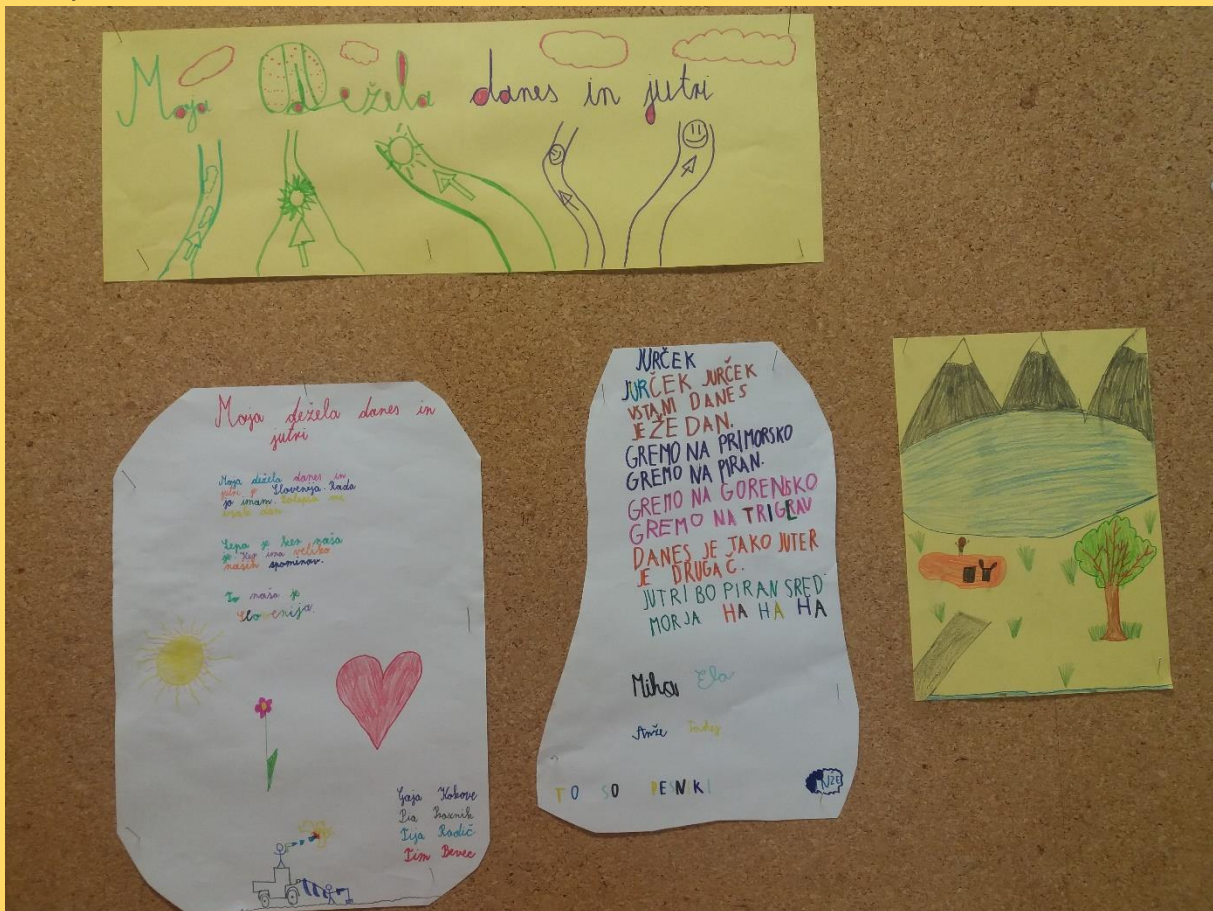 Moja Dežela danes in jutri
Moja dežela danes in
jutri
Moja dežela danes in
jutri je Slovenija. Rada
jo imam.
vsak dan
Lepa je ker naša
je. Ker ima veliko
naših spomenov.
To naša je
Slovenija.
Gaja Kokove
Pia
Tija Radič
Tim Bevec
JURČEK
JURČEK JURČEK
VSTANI DANES
JE ŽE DAN.
GREMO NA PRIMORSKO
GREMO NA PIRAN.
GREMO NA GORENSKO
GREMO NA TRIGLAV
DANES JE TAKO JUTER
JE DRUGAČ.
JUTRI BO PIRAN SRED
MORJA HA HA HA
Miha Ela
Anže Tadej
TO SO PESNIKI
NŽE